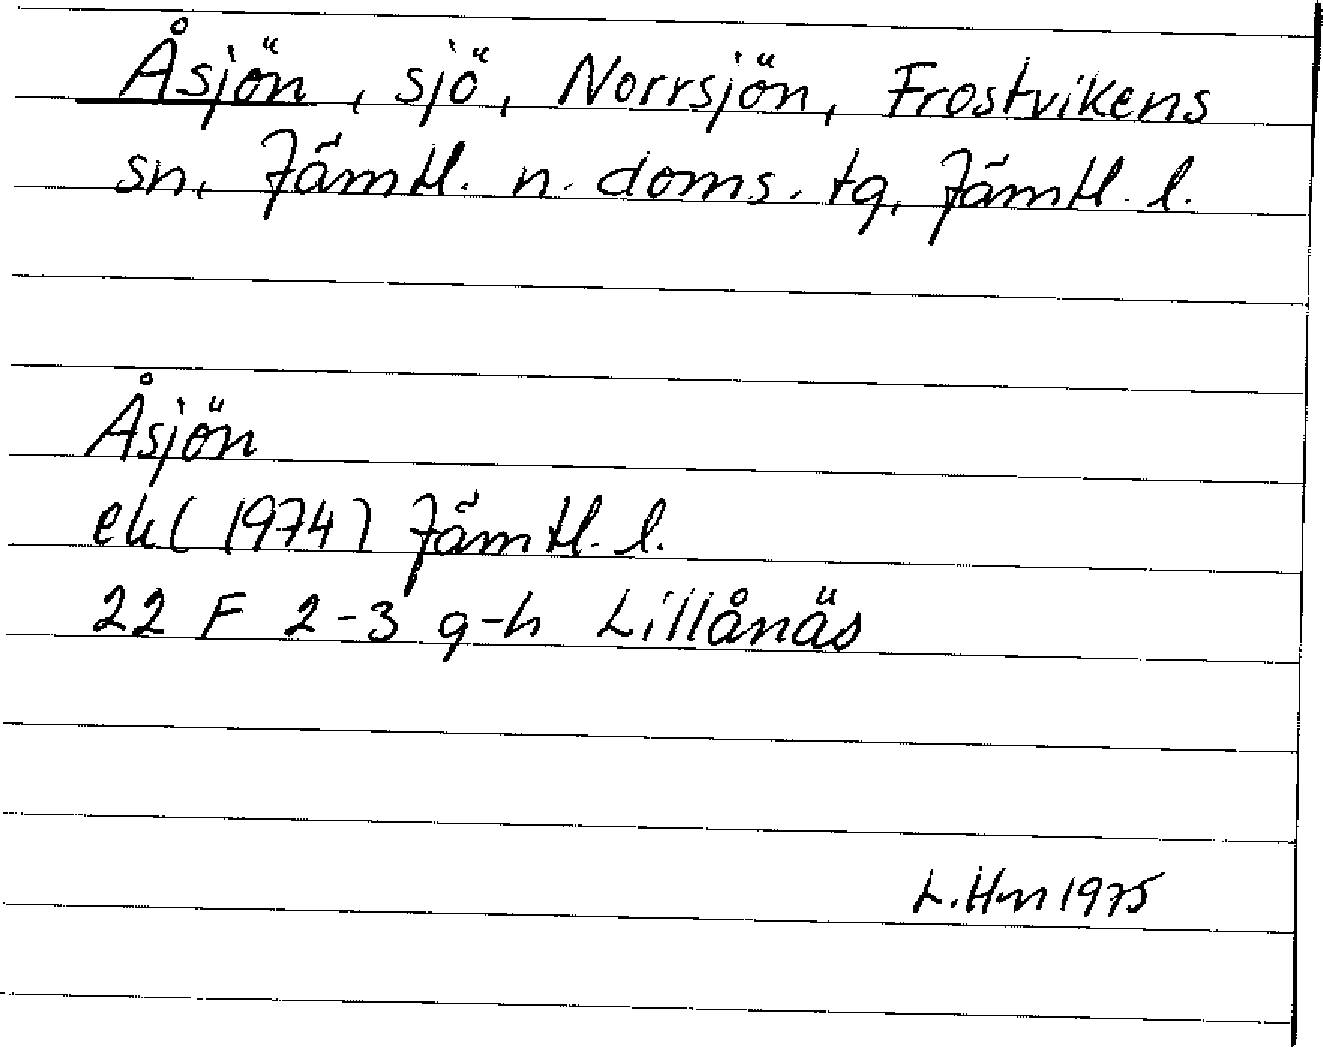 Åsjön, sjö, Norrsjön, Frostvikens
sn, Jämtl. n. doms. tg, Jämtl. l.
Åsjön
ek (1974) Jämtl. l.
22 F 2-3 g-h Lillånäs
L. Hm 1975